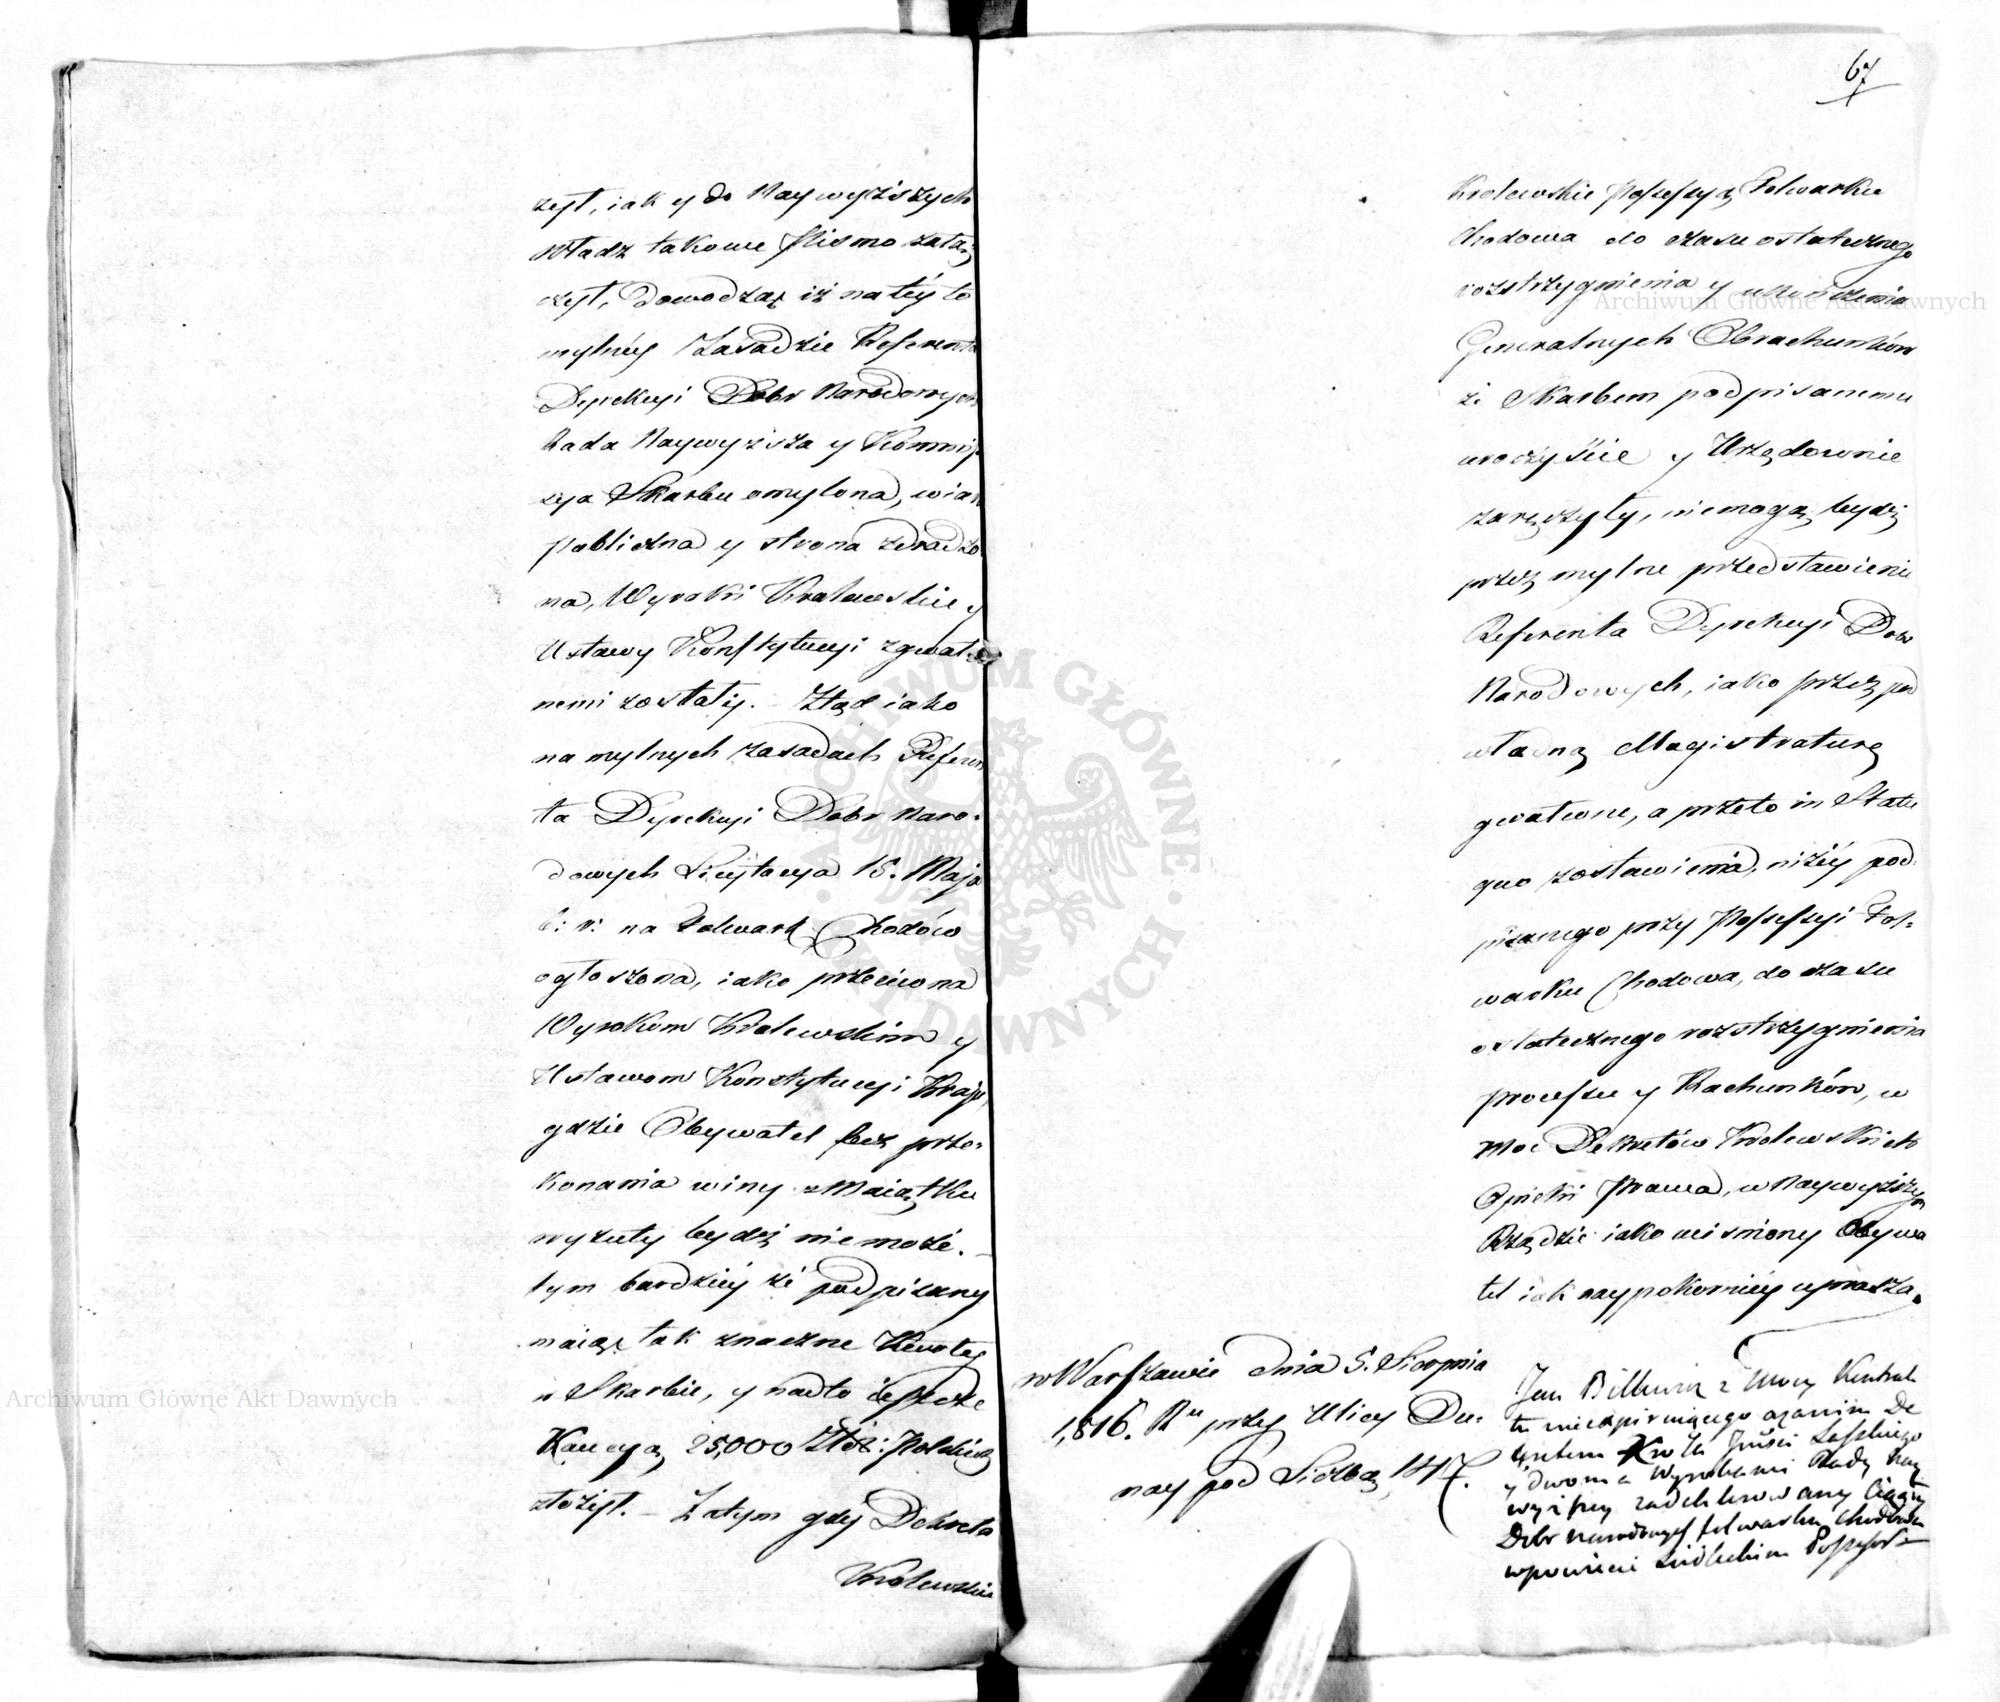 żył, iak y do Naywyższych
Władz takowe Pismo załą
czył, dowodząc iż na téy to
mylnéy Zasadzie Referenta
Dyrekcyi Dobr Narodowych
Rada Naywyższa y Kommis
sya Skarbu omylona, wiara
publiczna y strona zdradzo
na, Wyroki Krolewskie y
Ustawy Konstytucyi zgwałco
nemi zostały. Ztąd iako
na mylnych zasadach Referen
ta Dyrekcyi Dobr Naro-
dowych Licytacya 15. Maja
b: r: na Folwark Chodów
ogłoszona, iako przeciwna
Wyrokom Krolewskim y
Ustawom Konstytucyi Kraju,
gdzie Obywatel bez prze-
konania winy z Maiątku
wyzuty bydź nie może.
tym bardziéy że podpisany
maiąc tak znaczne Kwoty
w Skarbie, y nadto ieszcze
Kaucyą 25,000 Złot: Polskich
złożył. – Zatym gdy Dekreta
Krolewskie
67
Krolewskie Possessyą Folwarku
Chodowa do czasu ostatecznego
rozstrzygnienia y ukończenia
Generalnych Obrachunków
ze Skarbem podpisanemu
uroczyście y Urzędownie
zaręczyły, niemogą bydź
przez mylne przedstawienie
Referenta Dyrekcyi Dobr
Narodowych, iako przez pod
władną Magistraturę
gwałcone, a przeto in Statu
quo zostawienia, niżéy pod-
pisanego przy Possessyi Fol-
warku Chodowa, do czasu
ostatecznego rozstrzygnienia
processu y Rachunków, w
moc Dekretów Krolewskich
Opieki Prawa, w Naywyższym
Rządzie iako uciśniony Obywa
tel iak naypokorniéy uprasza.
w Warszawie dnia 5. Sierpnia
1,816. Ru przy Ulicy Du-
nay pod Liczbą 147.
Jan z Mocy Kontrak
tu De
kretem Krola Jmści
y dwoma Wyrokami Rady Nay
wyższey zadeklarowany
Dobr Narodowych folwarku Chodowa
w powiecie Siedleckim Possessor
Archiwum Główne Akt Dawnych
Archiwum Główne Akt Dawnych
ARCHIWUM GŁÓWNE AKT DAWNYCH